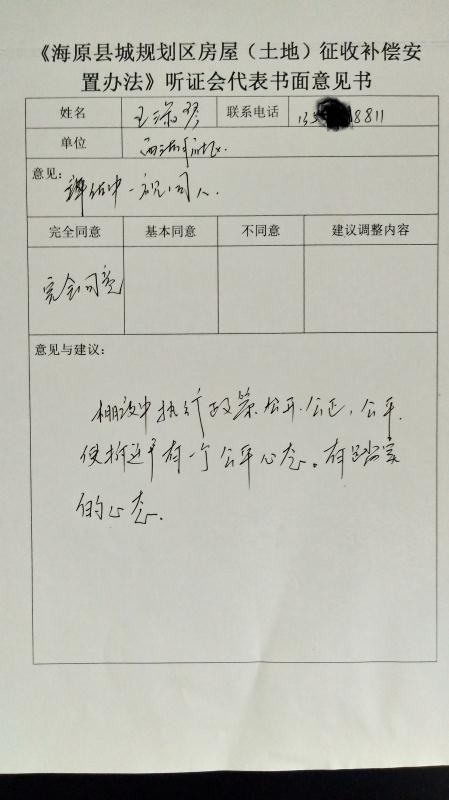 《海原县城规划区房屋（土地）征收补偿安
置办法》听证会代表书面意见书
姓名 王 琴 联系电话 135 8811
单位
意见:
一视同人.
完全同意 基本同意 不同意 建议调整内容
完全同意
意见与建议:
棚改中执行政策公开.公正,公平.
使拆迁户有一个公平心态。有踏实
的心态.